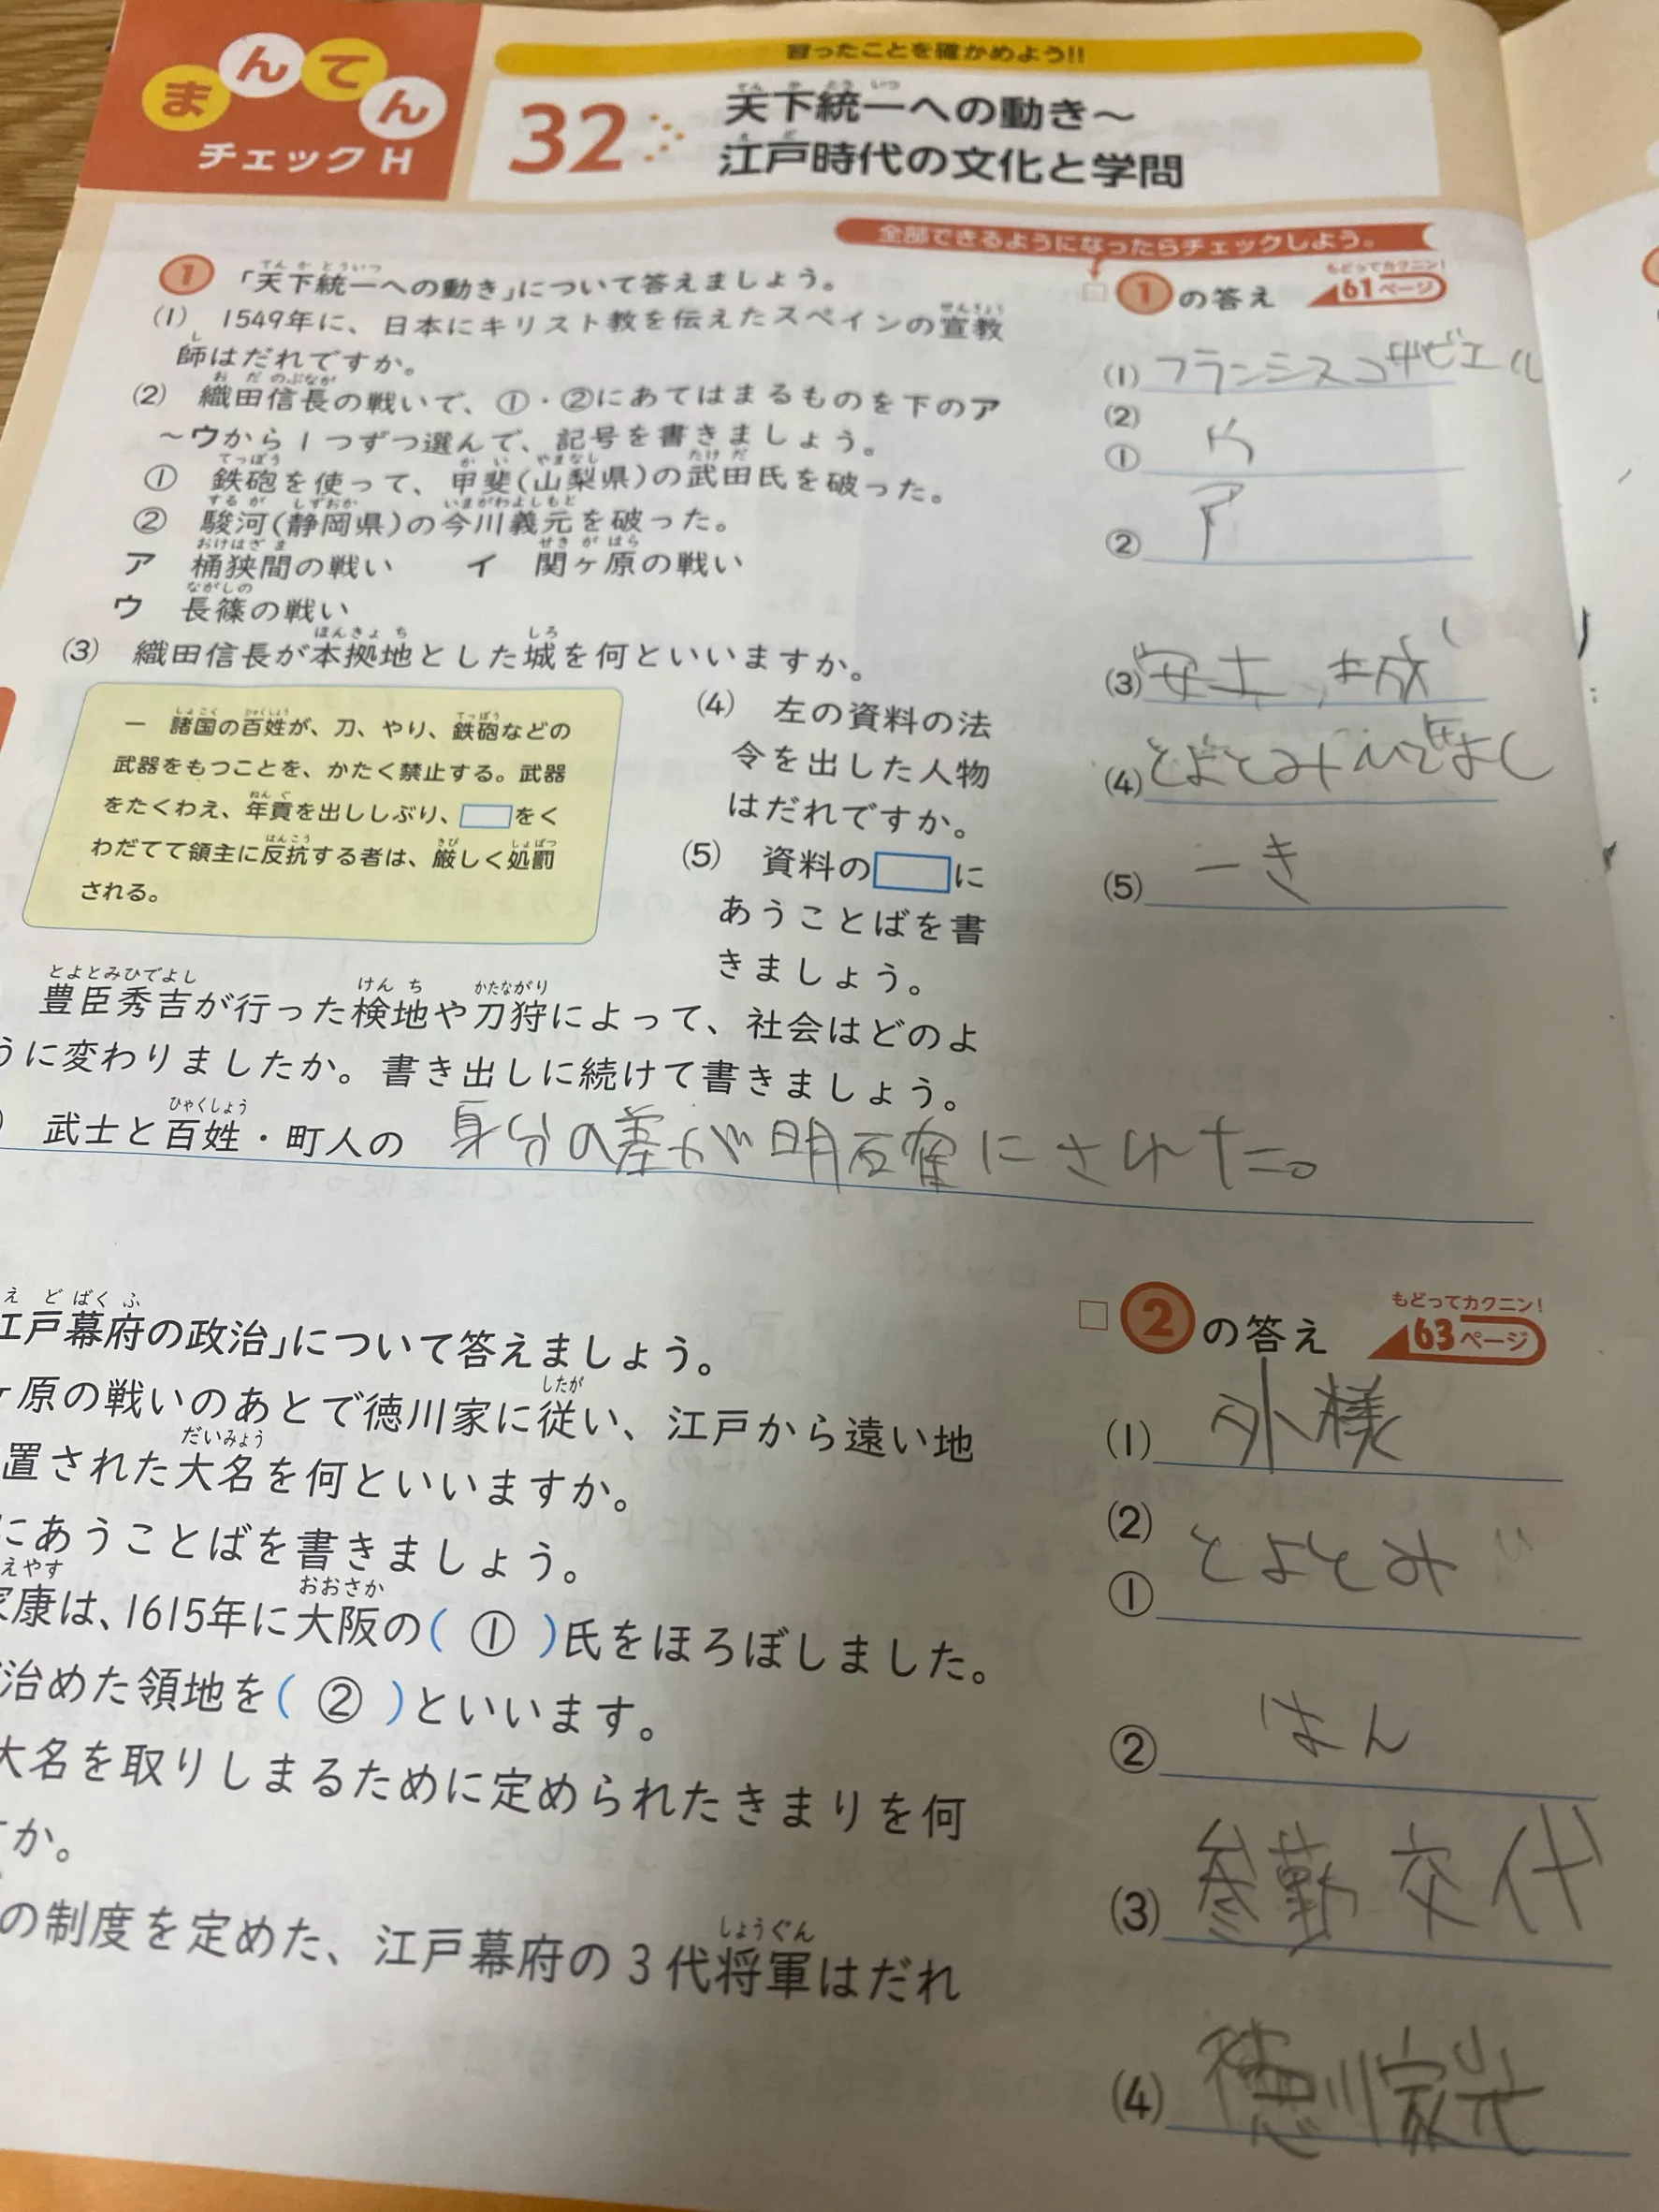 まんてん
チェック H
習ったことを確かめよう!!
32
天下統一への動き～
江戸時代の文化と学問
全部できるようになったらチェックしよう。
1 「天下統一への動き」について答えましょう。
(1) 1549年に、日本にキリスト教を伝えたスペインの宣教
師はだれですか。
(2) 織田信長の戦いで、①・②にあてはまるものを下のア
～ウから1つずつ選んで、記号を書きましょう。
① 鉄砲を使って、甲斐(山梨県)の武田氏を破った。
② 駿河(静岡県)の今川義元を破った。
ア 桶狭間の戦い イ 関ヶ原の戦い
ウ 長篠の戦い
(3) 織田信長が本拠地とした城を何といいますか。
一 諸国の百姓が、刀、やり、鉄砲などの
武器をもつことを、かたく禁止する。武器
をたくわえ、年貢を出ししぶり、□をく
わだてて領主に反抗する者は、厳しく処罰
される。
(4) 左の資料の法
令を出した人物
はだれですか。
(5) 資料の□に
あうことばを書
きましょう。
豊臣秀吉が行った検地や刀狩によって、社会はどのよ
うに変わりましたか。書き出しに続けて書きましょう。
武士と百姓・町人の 身分の差が明確にされた。
1の答え もどってカクニン! 61ページ
(1) フランシスコザビエル
(2)
① ウ
② ア
(3) 安土城
(4) とよとみひでよし
(5) 一き
江戸幕府の政治」について答えましょう。
ヶ原の戦いのあとで徳川家に従い、江戸から遠い地
置された大名を何といいますか。
にあうことばを書きましょう。
家康は、1615年に大阪の( ① )氏をほろぼしました。
治めた領地を( ② )といいます。
大名を取りしまるために定められたきまりを何
か。
の制度を定めた、江戸幕府の3代将軍はだれ
2の答え もどってカクニン! 63ページ
(1) 外様
(2)
① とよとみ
② はん
(3) 参勤交代
(4) 徳川家光